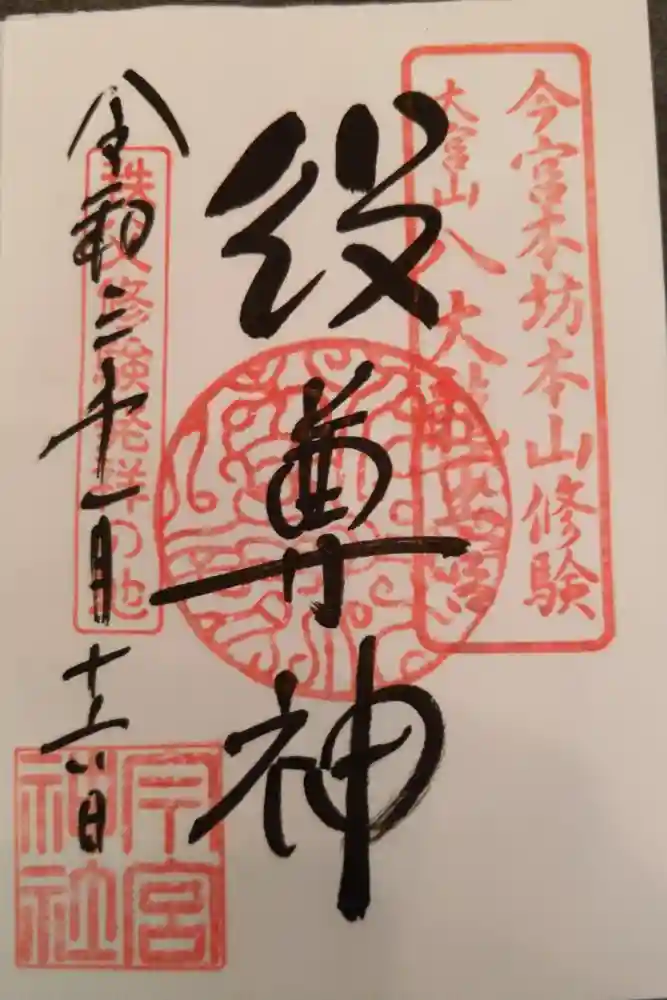 今宮本坊本山修験
大宮山八大龍王宮
役尊神
秩父修験発祥の地
令和
月
日
今宮
神社